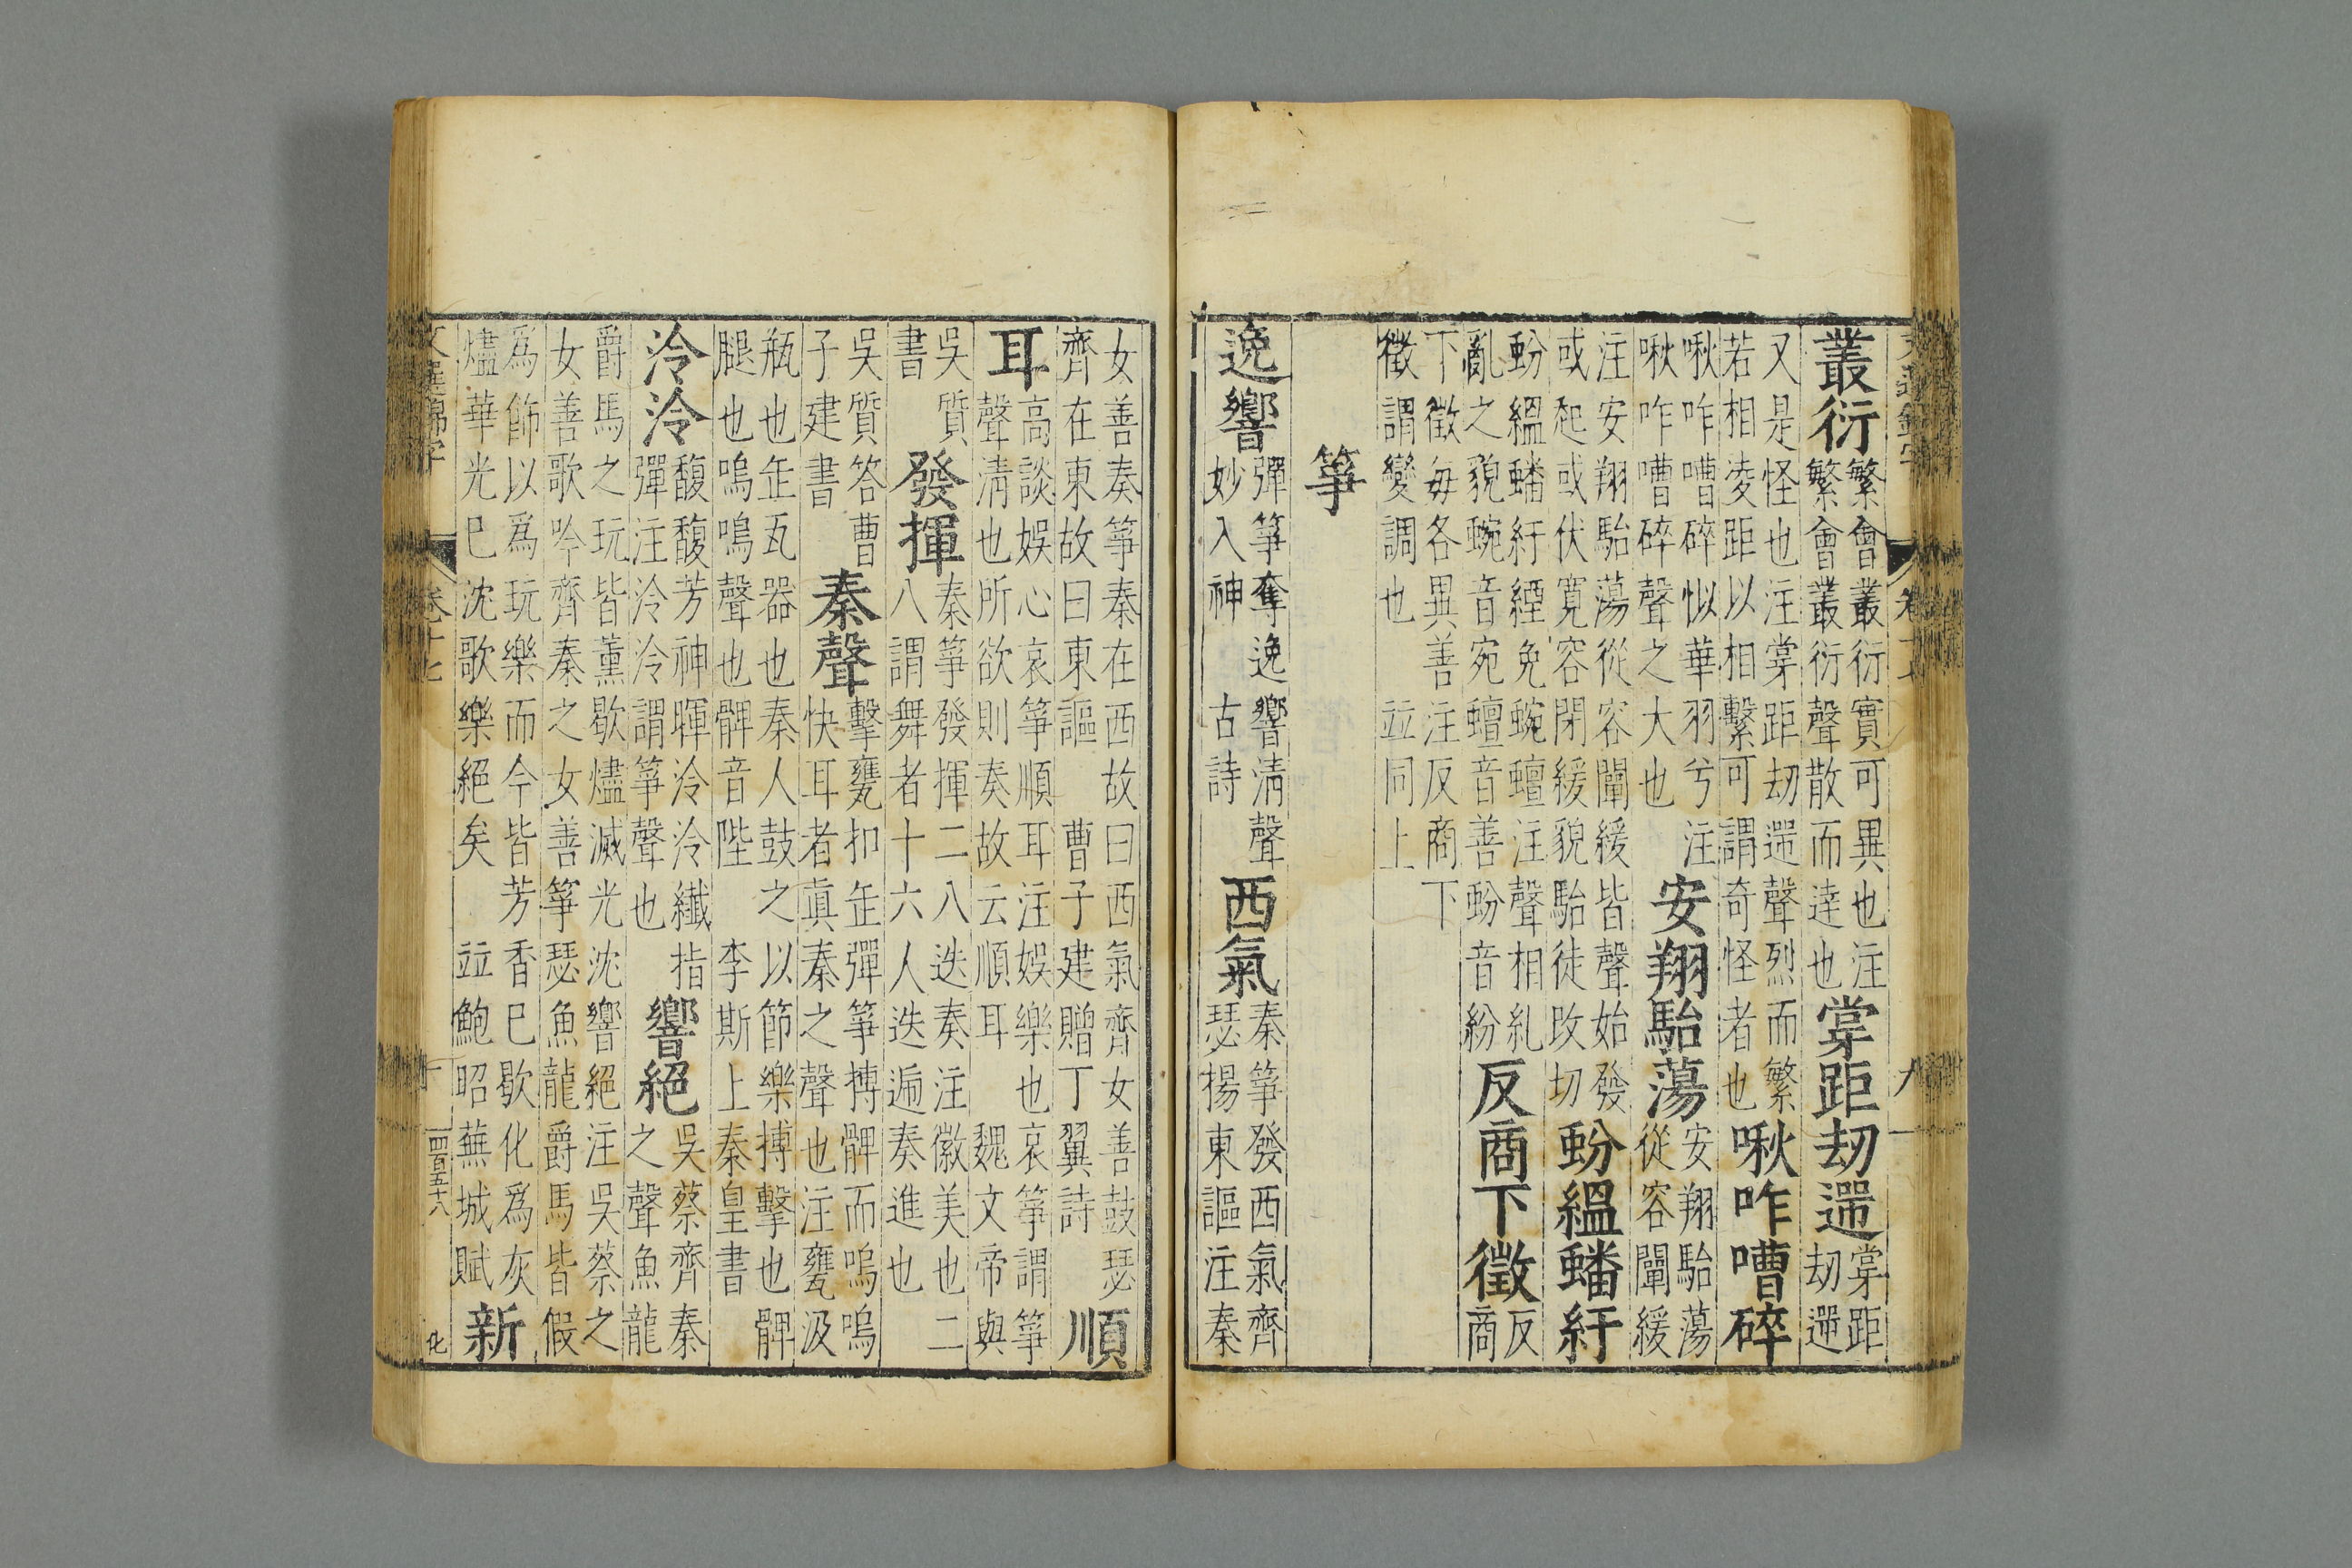 叢衍繁會叢衍實可異也注繁會叢衍聲散而逹也牚距劫遌牚距劫遌
又是怪也注牚距劫遌聲烈而繁若相凌距以相繫可謂奇怪者也啾咋嘈碎
啾咋嘈碎似華羽兮注啾咋嘈碎聲之大也安翔駘蕩安翔駘蕩從容闡緩
注安翔駘蕩從容闡緩皆聲始發或起或伏寛容閉緩貌駘徒改切蚡縕蟠紆
蚡縕蟠紆緸冤蜿蟺注聲相糺亂之貌蜿音宛蟺音善蚡音紛反商下徵反商
下徵每各異善注反商下徵謂變調也 並同上
箏
逸響彈箏奪逸響清聲妙入神 古詩西氣秦箏發西氣齊瑟揚東謳注秦
女善奏箏秦在西故曰西氣齊女善鼓瑟齊在東故曰東謳 曹子建贈丁翼詩順
耳高談娛心哀箏順耳注娛樂也哀箏謂箏聲清也所欲則奏故云順耳 魏文帝與
吳質書發揮秦箏發揮二八迭奏注徽美也二八謂舞者十六人迭遍奏進也
吳質答曹子建書秦聲擊甕扣缶彈箏搏髀而嗚嗚快耳者眞秦之聲也注甕汲
瓶也缶瓦器也秦人鼓之以節樂搏擊也髀腿也嗚嗚聲也髀音陛 李斯上秦皇書
泠泠馥馥芳神暉泠泠纖指彈注泠泠謂箏聲也響絕吳蔡齊秦之聲魚龍
爵馬之玩皆薰歇燼滅光沈響絕注吳蔡之女善歌吟齊秦之女善箏瑟魚龍爵馬皆假
爲飾以爲玩樂而今皆芳香已歇化爲灰燼華光已沈歌樂絕矣 並鮑昭蕪城賦新
文選錦字 卷十七 四百五十八 化